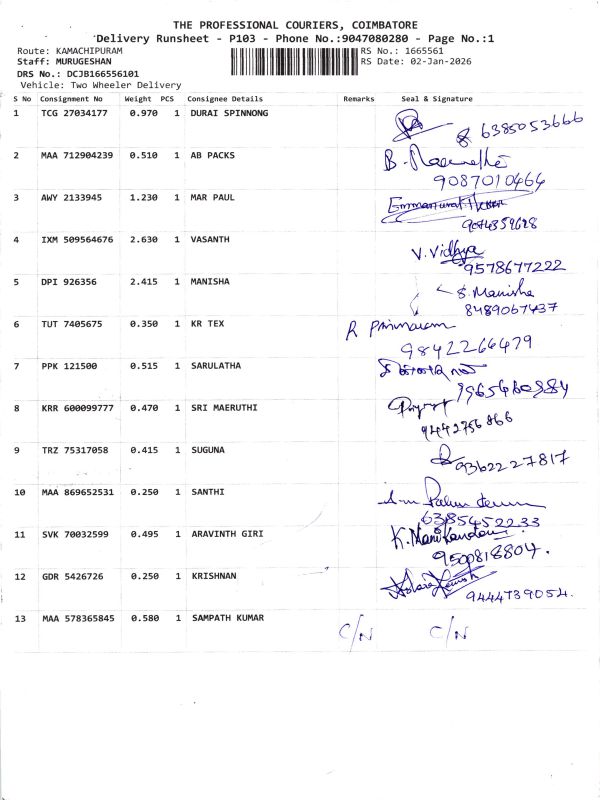 THE PROFESSIONAL COURIERS, COIMBATORE
Delivery Runsheet - P103 - Phone No.:9047080280 - Page No.:1
Route: KAMACHIPURAM RS No.: 1665561
Staff: MURUGESHAN RS Date: 02-Jan-2026
DRS No.: DCJB166556101
Vehicle: Two Wheeler Delivery
S No Consignment No Weight PCS Consignee Details Remarks Seal & Signature
1 TCG 27034177 0.970 1 DURAI SPINNONG 6385053666
2 MAA 712904239 0.510 1 AB PACKS B.
9087010464
3 AWY 2133945 1.230 1 MAR PAUL
4 IXM 509564676 2.630 1 VASANTH V. Vidhya
9578677222
5 DPI 926356 2.415 1 MANISHA S. Manisha
8489067437
6 TUT 7405675 0.350 1 KR TEX R
9842266479
7 PPK 121500 0.515 1 SARULATHA
8 KRR 600099777 0.470 1 SRI MAERUTHI
9442756866
9 TRZ 75317058 0.415 1 SUGUNA 9362227817
10 MAA 869652531 0.250 1 SANTHI
6385452233
11 SVK 70032599 0.495 1 ARAVINTH GIRI K. Manikandan
9500818804.
12 GDR 5426726 0.250 1 KRISHNAN
9444739054.
13 MAA 578365845 0.580 1 SAMPATH KUMAR C/N C/N